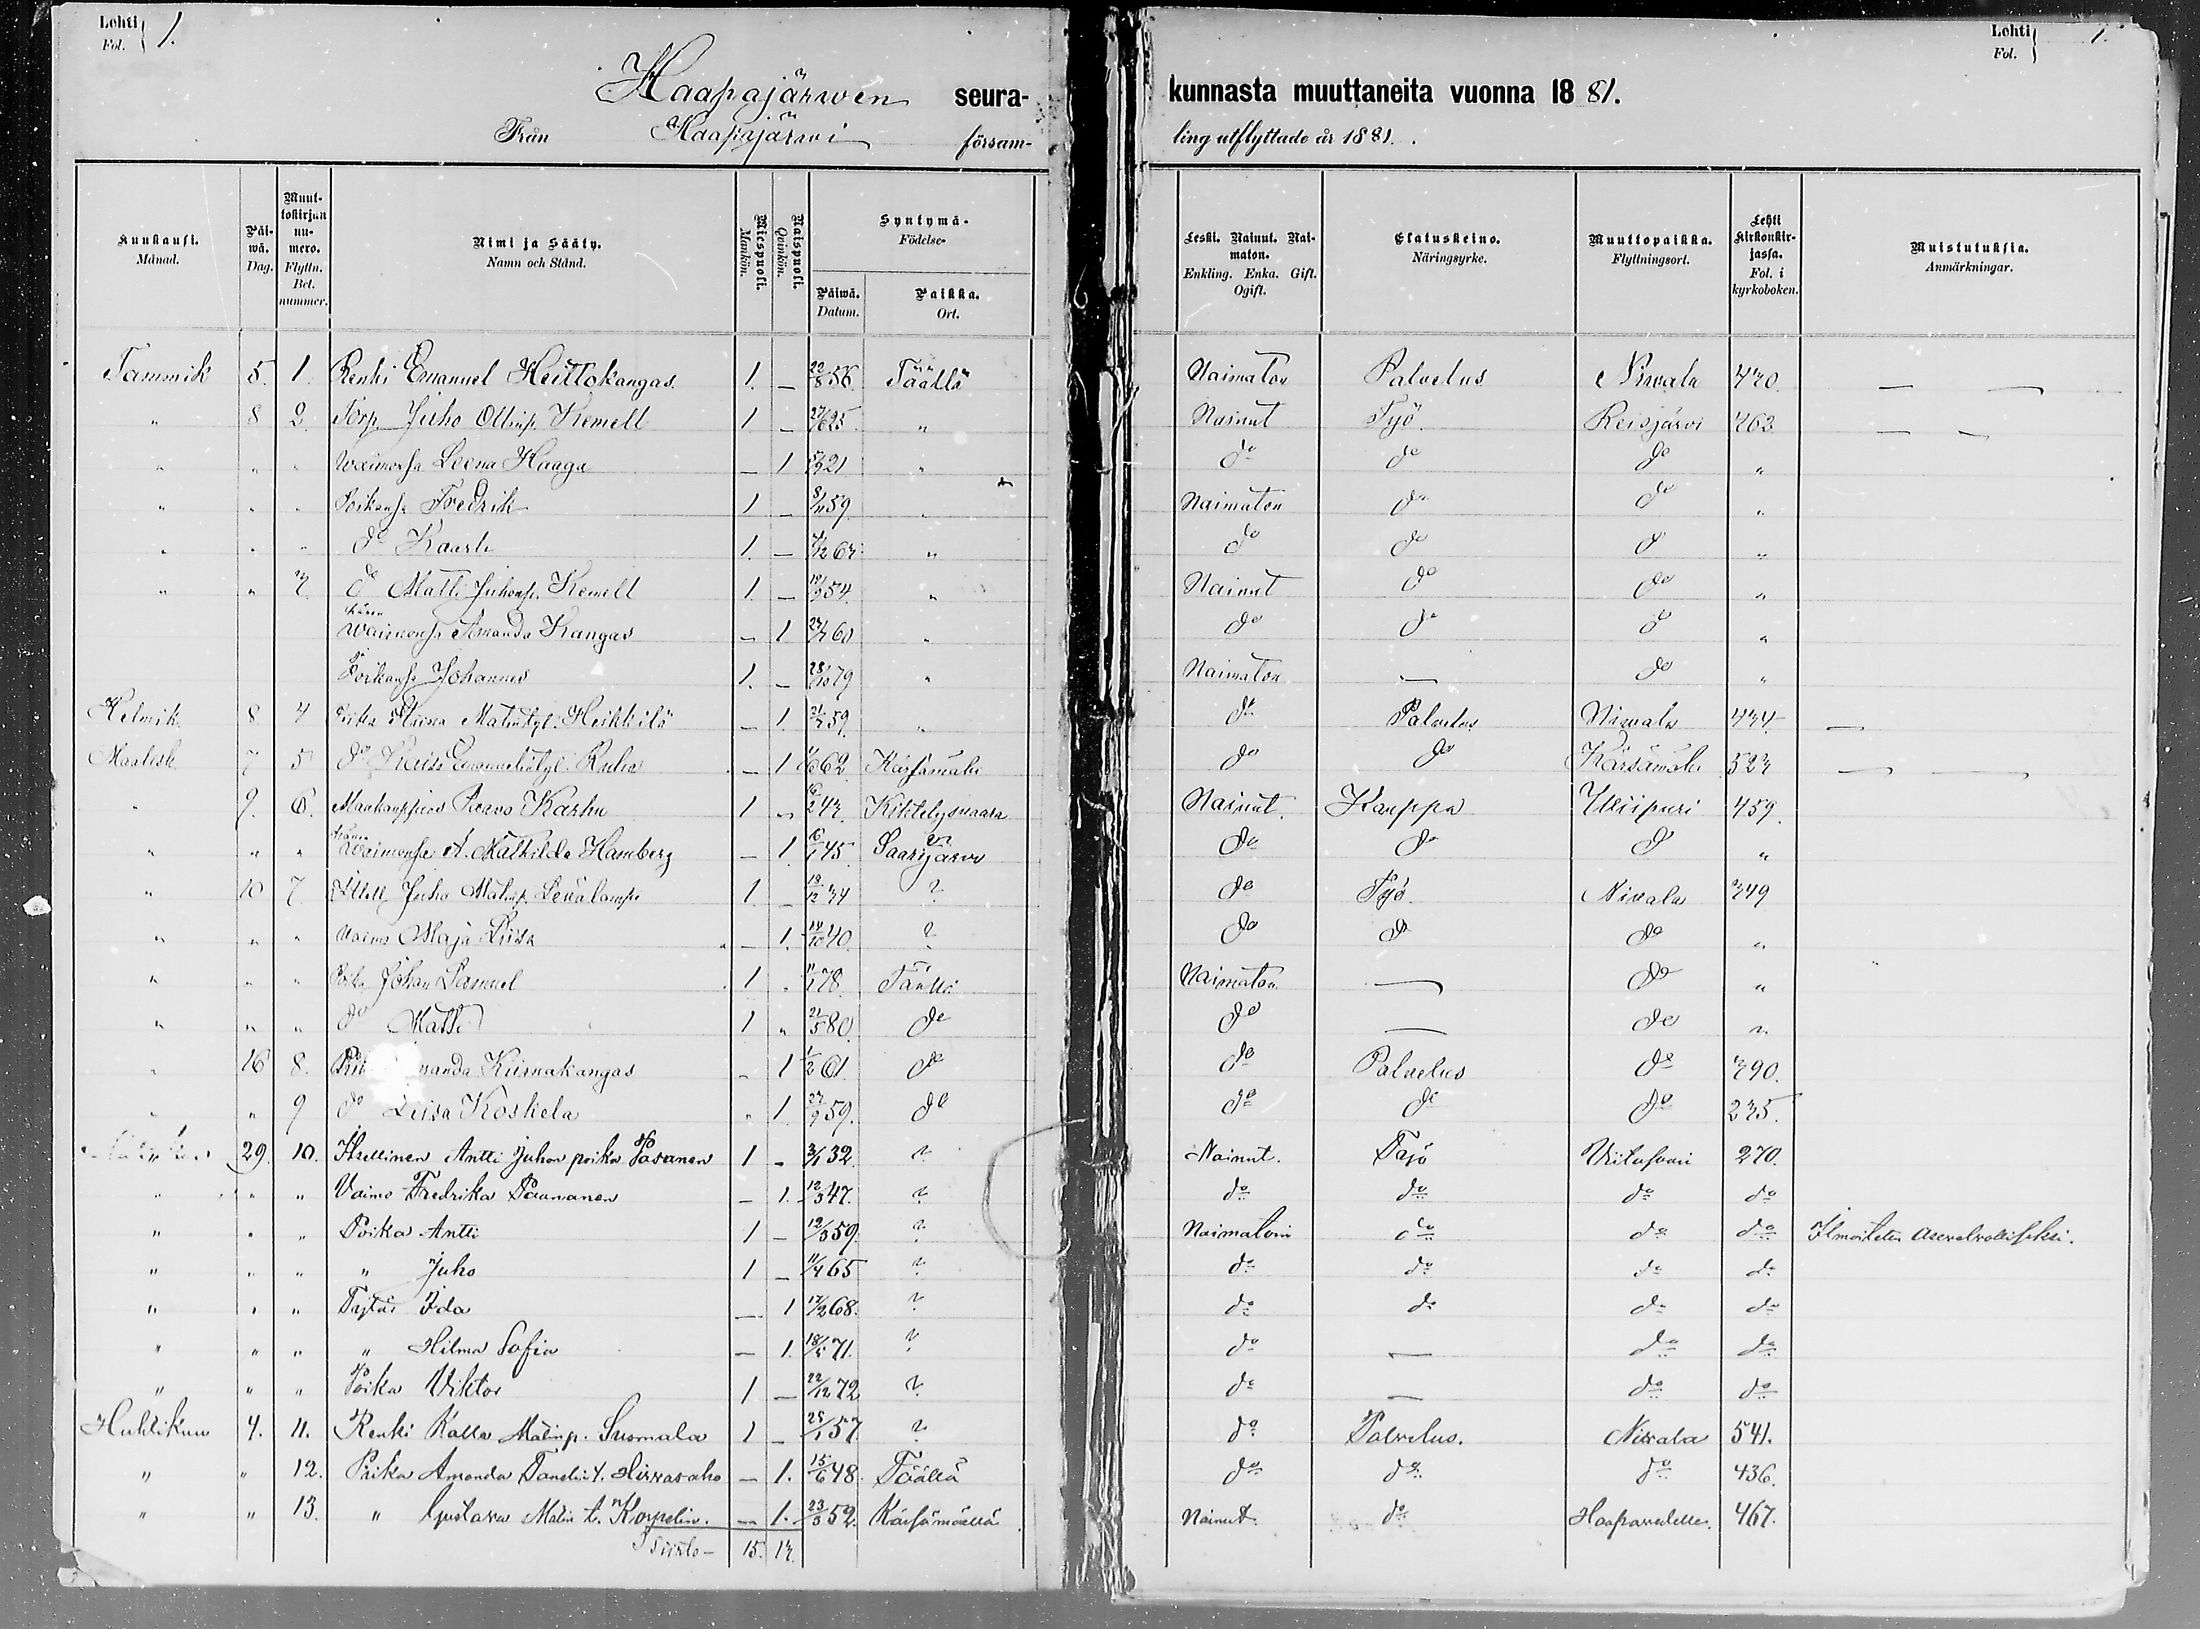 Lehti Fol. 1.
Lehti Fol. 1.
Haapajärwen seura- kunnasta muuttaneita vuonna 18 81.
Från Haapajärwi försam- ling utflyttade år 1881.
Kuukausi. Månad. Päiwä. Dag. Muuttokirjan numero. Flyttn. Bet. nummer. Nimi ja Sääty. Namn och Stånd. Miespuoli. Mankön. Naispuoli. Qvinkön. Syntymä- Födelse- Päiwä. Datum. Paikka. Ort. Leski. Nainut. Naimaton. Enkling. Enka. Gift. Ogift. Elatuskeino. Näringsyrke. Muuttopaikka. Flyttningsort. Lehti kirkonkirjassa. Fol. i kyrkoboken. Muistutuksia. Anmärkningar.
Tammik 5. 1. Renki Emanuel Heittokangas. 1. — 22/8 56 Täällä Naimaton Palvelus Niwala 420. — —
" 8 2. Torp Juho Ollinp. Kemell 1 — 27/6 25. " Nainut Työ. Reisjärvi 463. — —
" " " Waimonsa Leena Haaga — 1 21 " do do do "
" " " Poikansa Fredrik 1 — 8/11 59. " Naimaton do do "
" " " do Kaarle 1. — " do do do "
" " 3 do Matti Juhonp. Kemell 1. — 54. " Nainut do do "
hänen Waimonsa Amanda Kangas — 1 60 " do do do "
Poikansa Johannes 1. — 28/10 79 " Naimaton — do "
Helmik 8 4 Piika Matintyt. Heikkilä — 1. 59. " do Palvelus Niwala 434. —
Maalisk 7 5 do — 1 62. Kärsämäki do do Kärsämäki 523 — —
" 9. 6. Karhu 1 " Kiihtelysvaara Nainut. Kauppa Wiipuri 459.
" " " hänen Waimonsa A. Mathilda Hamberg — 1. 45. Saarijärvi do do do "
" 10 7. Juho Matinp. 1. — 19/12 34 ? do Työ. Nivala 349
" " " Vaimo Maja Liisa — 1. 14/10 40. ? do do do "
" " " Poika Johan Samuel 1 " 78. Täällä Naimaton — do "
" " " do Matti 1 " 21/5 80. do do — do "
" 16 8. Kiinakangas " 1 1/2 61. do do Palvelus do 390.
" " 9 do Liisa Koskela " 1 27/9 59. do do do do 235.
29. 10. Itsellinen Antti Juhon poika Pasanen 1 - 3/1 32. ? Nainut. Työ Viitasaari 270.
" " " Vaimo Fredrika Paananen — 1. 12/3 47. ? do do do do
" " " Poika Antti 1 — 12/3 59. ? Naimaton do do do Ilmoitettu asevelvolliseksi.
" " " " Juho 1 — 11/4 65 ? do do do do
" " " Tytär Ida — 1 17/2 68. ? do do do do
" " " " Hilma Sofia — 1. 18/5 71. ? do — do do
" " " Poika Viktor 1 — 22/12 72 ? do — do do
Huhtikuu 4. 11. Renki Kalle Matinp. Suomala 1 — 25/1 57 ? do Palvelus. Nivala 541.
" " 12. Piika Amanda Hirvasaho — 1. 15/6 48. Täällä do do do 436.
" " 13. " Gustava Matin t. Korpelin. — 1. 23/3 52. Kärsämäellä Nainut. do Haapavedelle. 467.
Siirto — 15. 13.